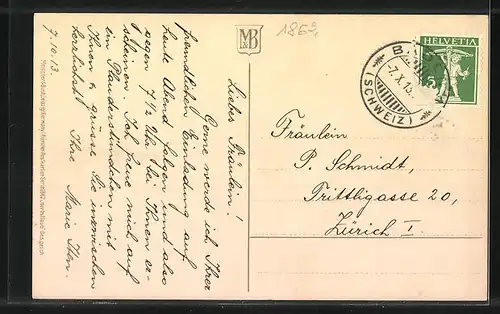 7.10.13.
Liebes Fräulein!
Gerne werde ich Ihrer
freundlichen Einladung auf
heute Abend folgen und also
gegen 7½ Uhr bei Ihnen er-
scheinen. Ich freue mich auf
ein Plauderstündchen mit
Ihnen & grüsse Sie inzwischen
herzlichst Ihre Marie
MB
186
HELVETIA
5
-7.X.13.
(SCHWEIZ)
Fräulein
P. Schmidt,
Trittligasse 20,
Zürich I.